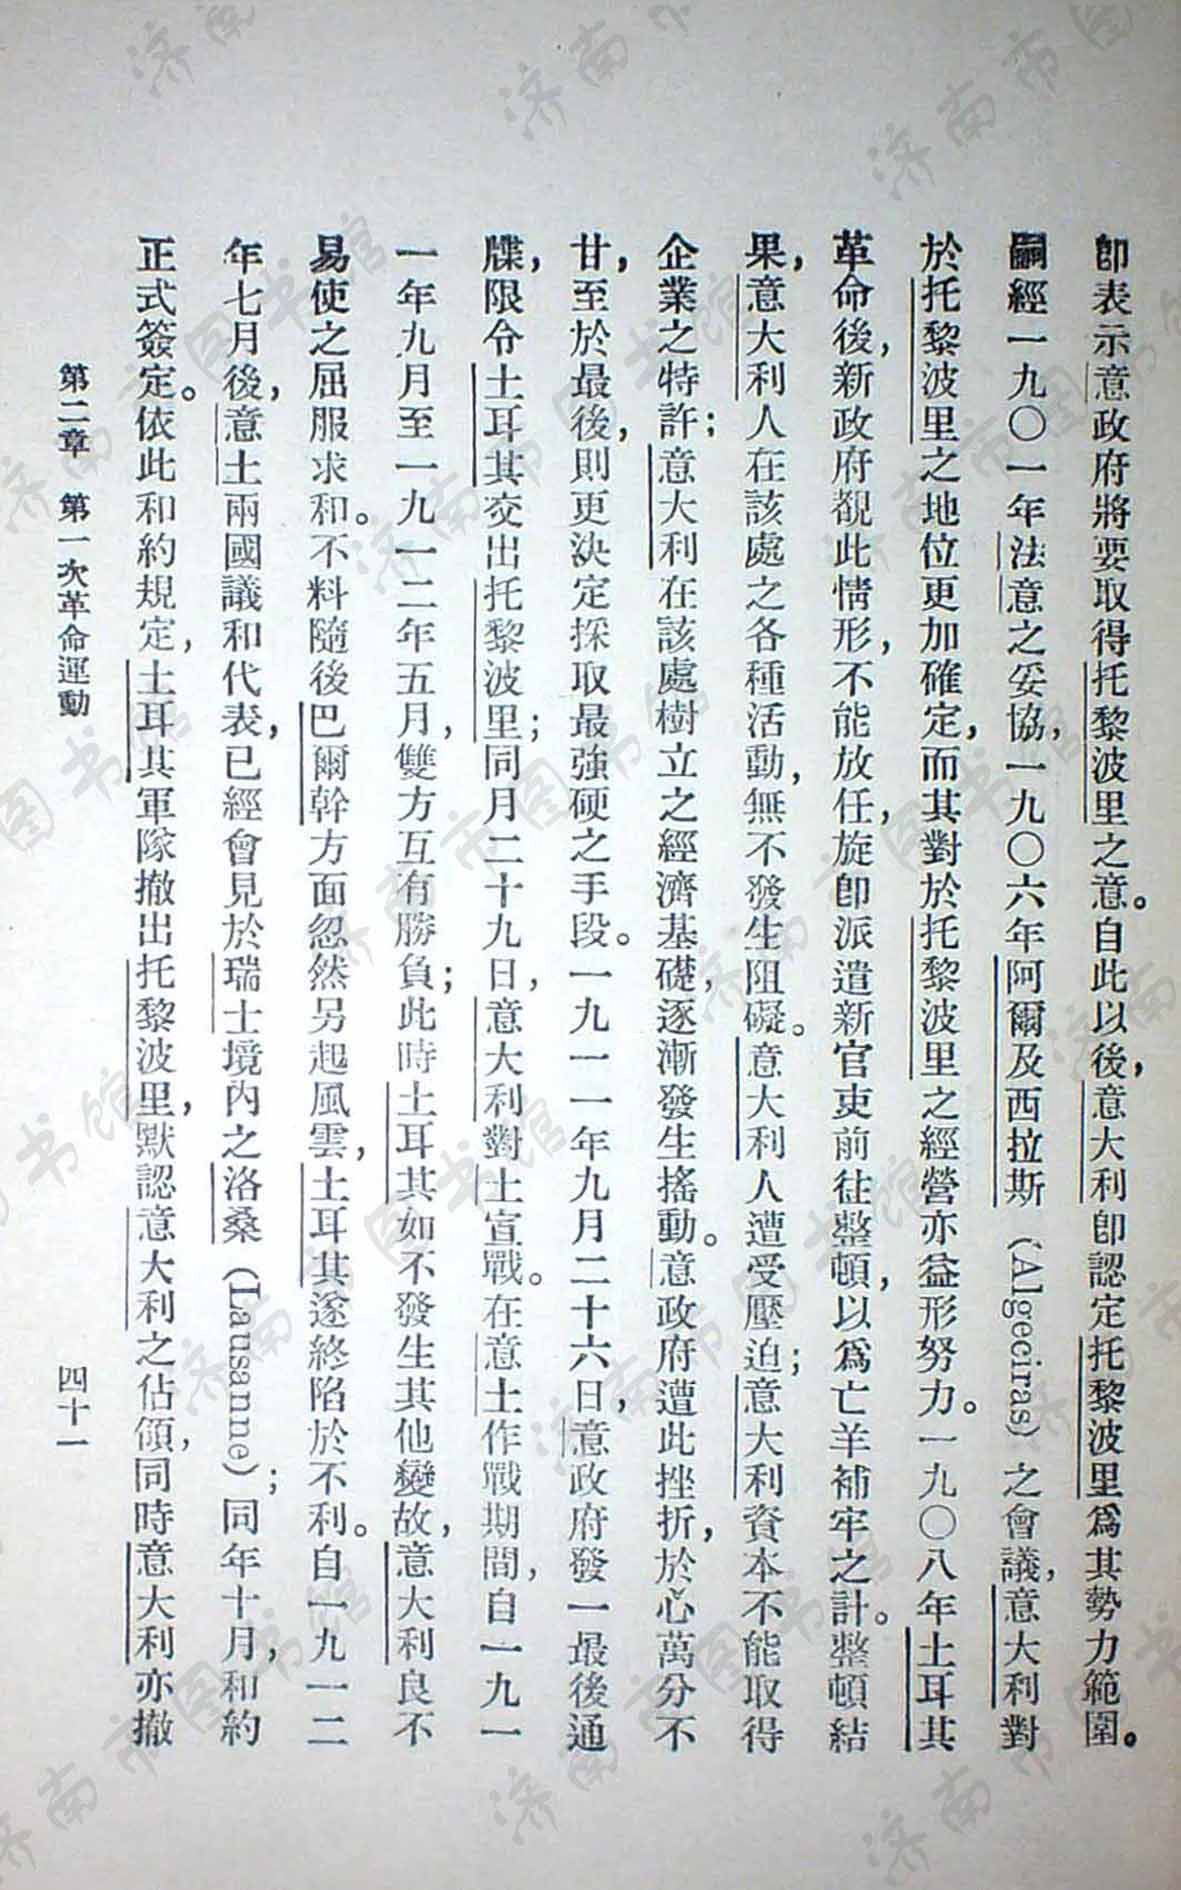 卽表示意政府將要取得托黎波里之意。自此以後，意大利卽認定托黎波里爲其勢力範圍。
嗣經一九〇一年法意之妥協，一九〇六年阿爾及西拉斯（Algeciras）之會議，意大利對
於托黎波里之地位更加確定，而其對於托黎波里之經營亦益形努力。一九〇八年土耳其
革命後，新政府覩此情形，不能放任，旋卽派遣新官吏前往整頓，以爲亡羊補牢之計。整頓結
果，意大利人在該處之各種活動，無不發生阻礙。意大利人遭受壓迫；意大利資本不能取得
企業之特許；意大利在該處樹立之經濟基礎，逐漸發生搖動。意政府遭此挫折，於心萬分不
甘，至於最後，則更決定採取最強硬之手段。一九一一年九月二十六日，意政府發一最後通
牒，限令土耳其交出托黎波里；同月二十九日，意大利對土宣戰。在意土作戰期間，自一九一
一年九月至一九一二年五月，雙方互有勝負；此時土耳其如不發生其他變故，意大利良不
易使之屈服求和。不料隨後巴爾幹方面忽然另起風雲，土耳其遂終陷於不利。自一九一二
年七月後，意土兩國議和代表，已經會見於瑞士境內之洛桑（Lausanne）；同年十月，和約
正式簽定。依此和約規定，土耳其軍隊撤出托黎波里，默認意大利之佔領，同時意大利亦撤
第二章　第一次革命運動
四十一
济南市图书馆